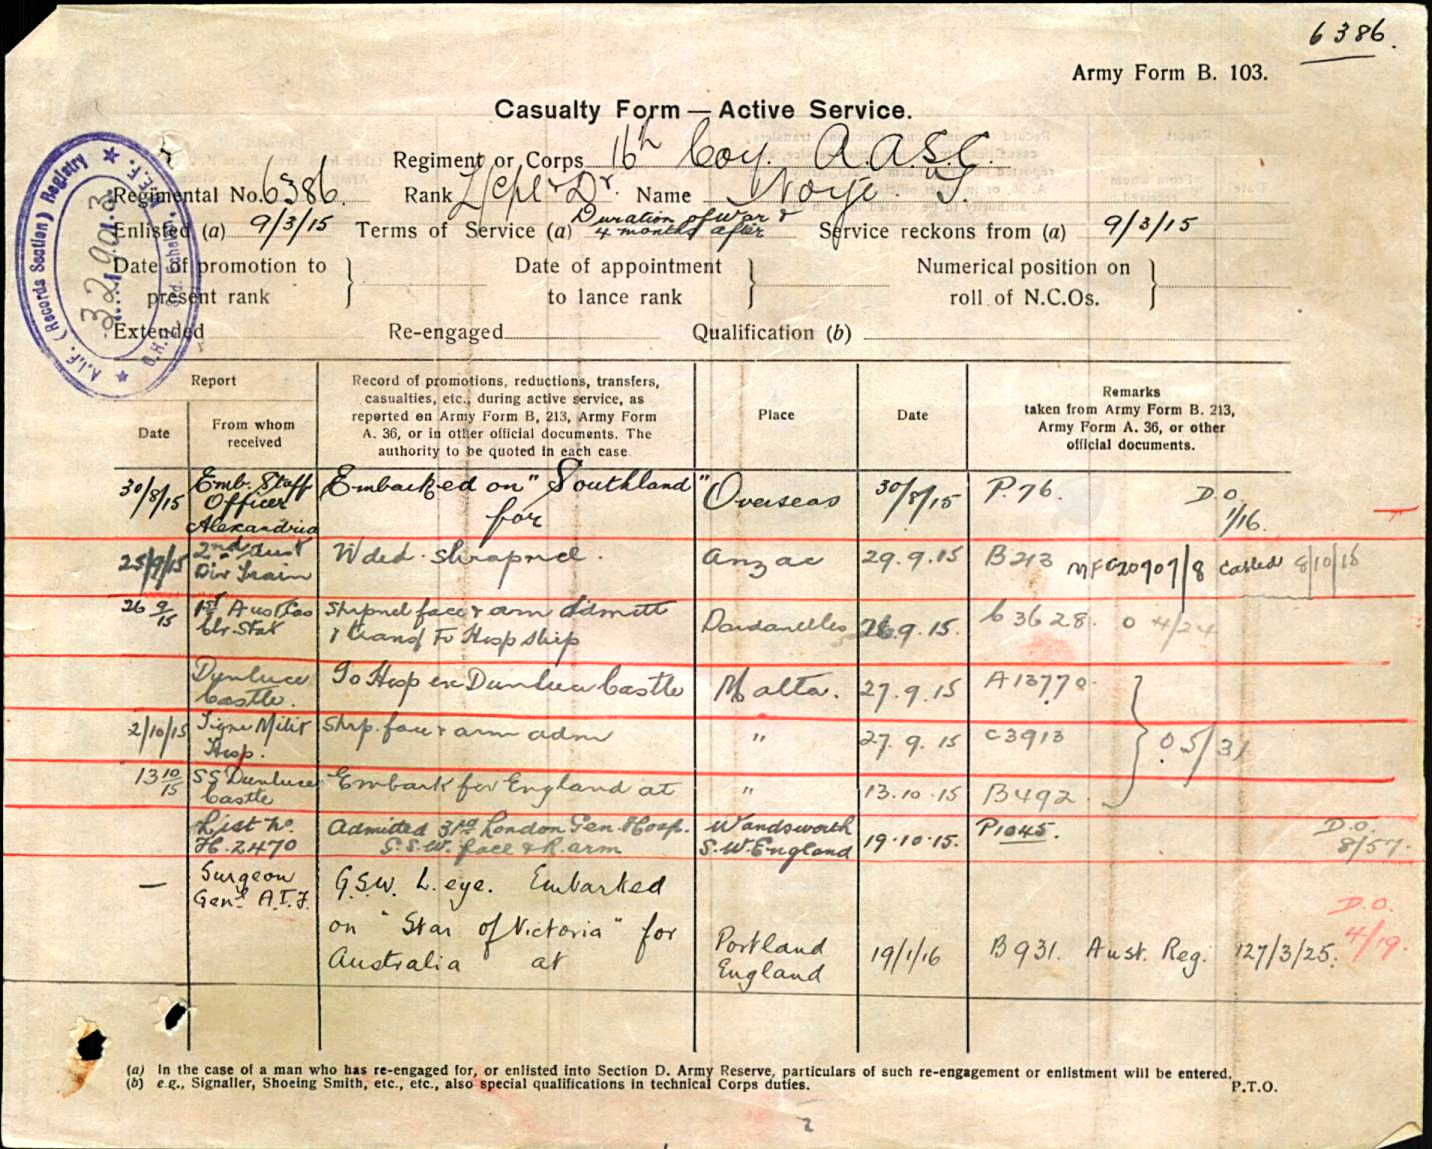 6386.
Army Form B. 103.
Casualty Form — Active Service.
Regiment or Corps 16th Coy. A.A.S.C.
Regimental No. 6386. Rank Dr. Name Noye. S.
Enlisted (a) 9/3/15 Terms of Service (a) Duration of War & 4 months after Service reckons from (a) 9/3/15
Date of promotion to present rank } Date of appointment to lance rank } Numerical position on roll of N.C.Os. }
Extended Re-engaged Qualification (b)
A.I.F. (Records Section) Registry
Report
Date
From whom received
Record of promotions, reductions, transfers, casualties, etc., during active service, as reported on Army Form B, 213, Army Form A. 36, or in other official documents. The authority to be quoted in each case
Place
Date
Remarks taken from Army Form B. 213, Army Form A. 36, or other official documents.
30/8/15 Emb. Staff Officer Alexandria Embarked on "Southland" for Overseas 30/8/15 P.76. D.O. 1/16.
25/9/15 2nd Aust Div Train Wded. shrapnel. Anzac 29.9.15 B213 Cabled 8/10/15
26 9/15 1st Aust Cas Clr. Stat Shrpnel face & arm Admitt & transf To Hosp ship Dardanelles 26.9.15. C3628. O 4/24
Dunluce Castle. To Hosp ex Dunluce Castle Malta. 27.9.15 A13770.
2/10/15 Tigne Milit Hosp. Shrp. face & arm adm " 27.9.15 C3913 } O.5/31
13 10/15 SS Dunluce Castle Embark for England at " 13.10.15 B492
List No. H.2470 Admitted 3rd London Gen. Hosp. G.S.W. face & R. arm Wandsworth S.W. England 19.10.15. P1045. D.O. 8/57.
— Surgeon Genl A.I.F. G.S.W. L. eye. Embarked on "Star of Victoria" for Australia at Portland England 19/1/16 B931. Aust. Reg. 127/3/25. D.O. 4/19.
(a) In the case of a man who has re-engaged for, or enlisted into Section D. Army Reserve, particulars of such re-engagement or enlistment will be entered.
(b) e.g., Signaller, Shoeing Smith, etc., etc., also special qualifications in technical Corps duties.
P.T.O.
2